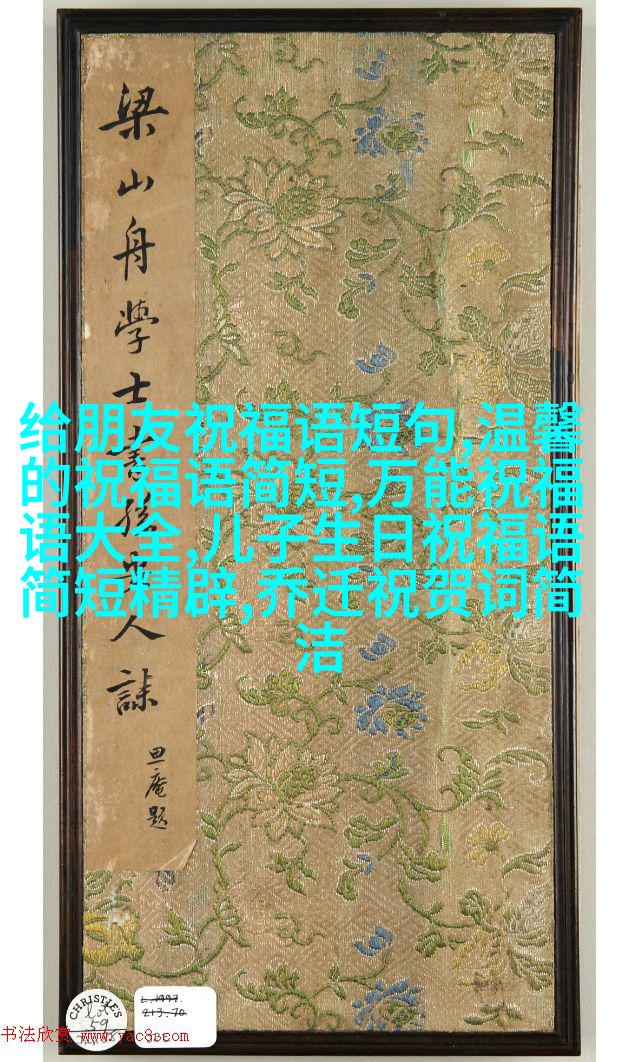 梁山舟學士書人誄
庵題
给朋友祝福语短句,温馨
的祝福语简短,万能祝福
语大全,儿子生日祝福语
简短精辟,乔迁祝贺词简
洁
CHRISTIE'S
Lot
59
L.1997.
213.70
书法欣赏 www.yac8.com